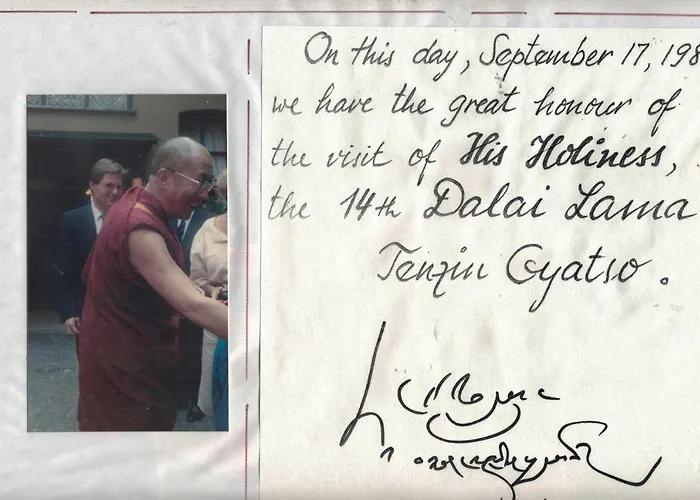 On this day, September 17, 198
we have the great honour of
the visit of His Holiness,
the 14th Dalai Lama
Tenzin Gyatso.